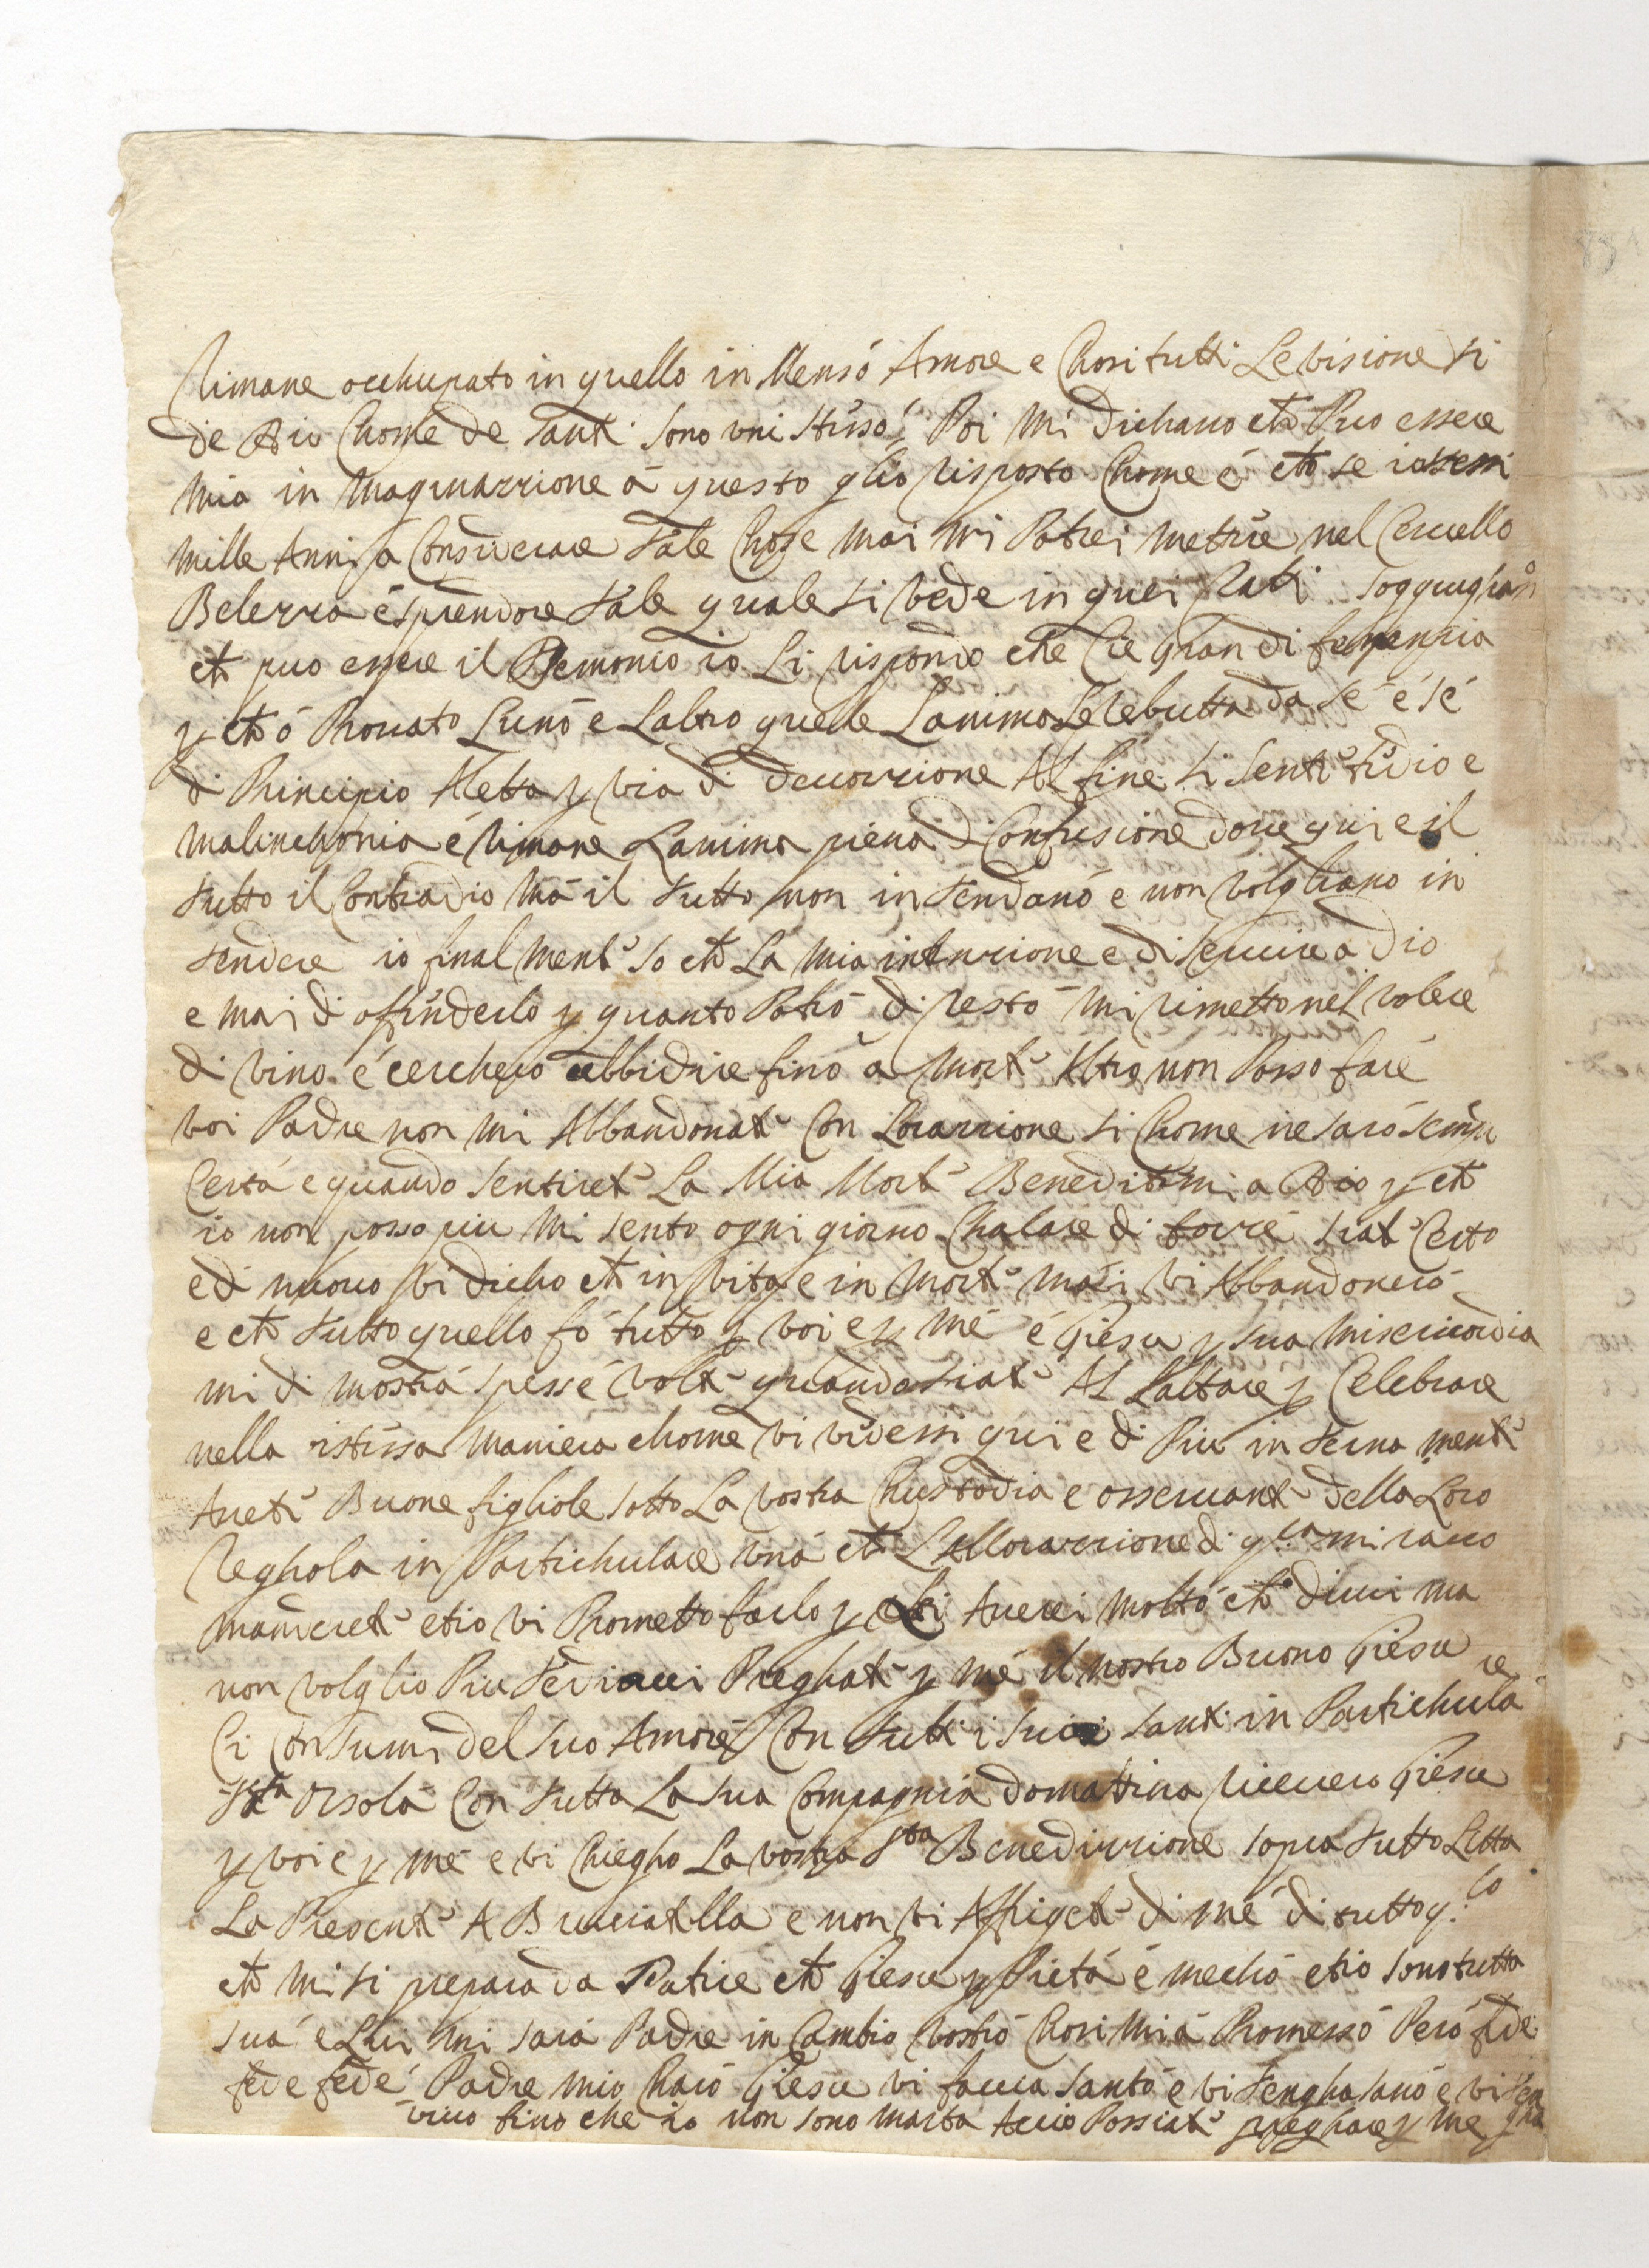 rimane occhupato in quello in Menso Amore e Chosi tutti Le visione si
de Dio Chome de Santi sono uni stesso, Poi mi dichano che Puo essere
mia in maginazzione à questo gliò risposto Chome è che se io stessi
mille Anni a Considerare tale Chose mai mi Potrei mettere nel Cervello
Belezza è sprendore tale quale si vede in quei ratti soggiughano
che puo essere il Demonio io Li rispondo che Cie gran diferenzia
p che ò Provato Luno e Laltro quelle Lanima Se le butta da sé e sé
di Principio Aletta p via di devozzione Al fine si sente tedio e
malinchonia é rimane Lanima piena di Confusione dove qui e il
tutto il Contradio má il tutto non in tendano e non volgliano in
tendere io final mente so che La mia intenzione e di servire a dio
e mai di ofenderlo p quanto Potro di resto mi rimetto nel volere
di vino é cercherò ubbidire fino a morte Altro non Posso fare
voi Padre non mi Abbandonate Con Lorazzione si Chome ne saro sempre
Certa e quando sentirete La Mia Morte Beneditemi a Dio p che
io non posso piu mi sento ogni giorno Chalare di forze siate Certo
e di nuovo vi dicho che in vita e in morte mai vi Abbandonerò
e che tutto quello fò tutto p voi e p mé é Giesu p sua misericordia
mi di mostra spesse volte quando siate Al Laltare p Celebrare
nella istessa maniera chome vi vedessi qui e di Piu in terna mente
Avete Buone figliole sotto La vostra Chustodia e osservante della Loro
reghola in Partichulare una che Lallorazzione di q.ta mi racco
manderete etio vi Prometto farlo p Lei Averei molto che dirvi ma
non volglio Piu tediarvi Preghate p mé il nostro Buono Giesu
Ci Consumi del suo Amore Con tutti i suoi Santi in Partichulare
Sta Orsola Con tutta La sua Compagnia domattina riceverò Giesu
p voi e p mé e vi Chiegho La vostra Sta Benedizzione sopra tutto Letta
La Presente A Bruciatella e non vi Affligete di mé di tutto q.lo
che mi si prepara da Patire che Giesu p Pietà é mecho etio sono tutta
sua e Lui mi sarà Padre in Cambio vostro Chosi mi à Promesso Però fede
fede fede Padre mio Charo Giesu vi faccia Santo e vi tengha sano e vi tengha
vivo fino che io non sono morta Acciò Possiate preghare p me